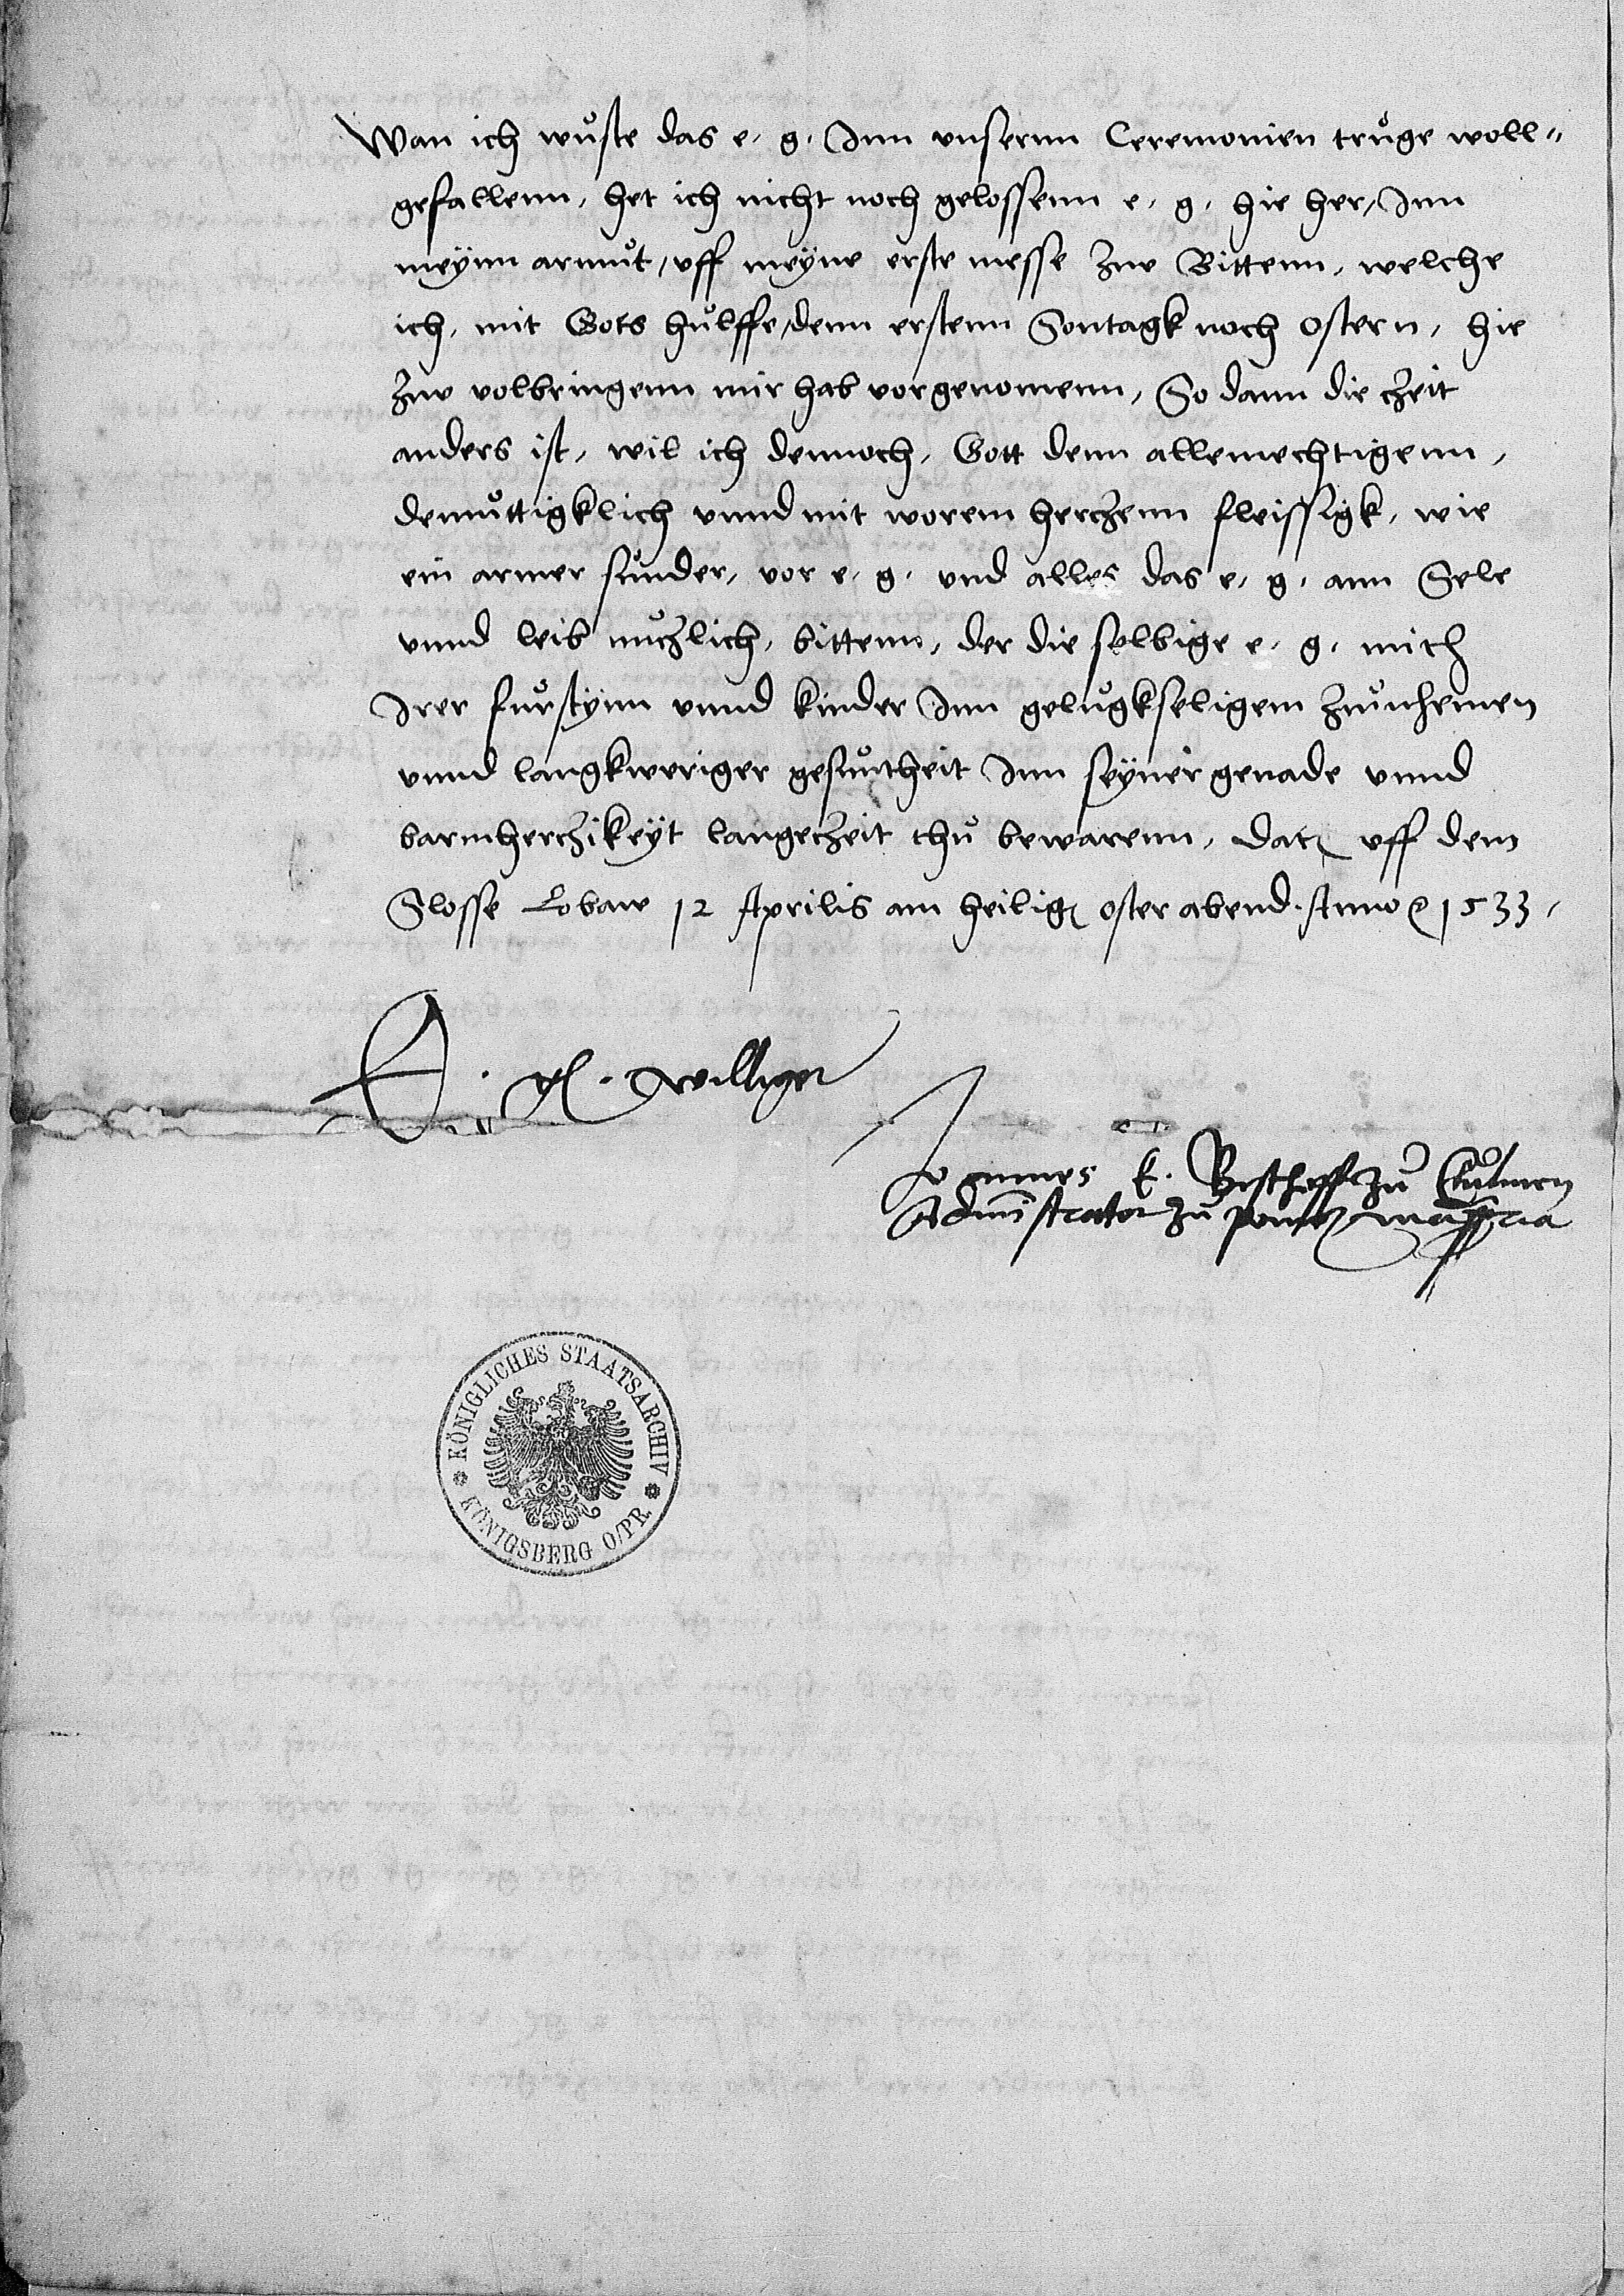 Wan ich wůste das e. g. Inn vnsernn Ceremonien trůge woll=
gefallenn, het ich nicht noch gelossenn e. g. hie her, Inn
meÿnn armůt, vff meÿne erste messe zue Bittenn, welche
ich, mit Gots hůlffe, denn erstenn Sontagk noch ostern, hie
zue volbringenn mir hab vorgenomenn, So dann die czeit
anders ist, wil ich dennoch, Gott denn allemechtigenn,
demůttigklich vnnd mit worem herczenn fleissigk, wie
ein armer sůnder, vor e. g. vnd alles das e. g. ann Sele
vnnd leib nůczlich, bittenn, der die selbige e. g. mith
Irer fůrstÿnn vnnd kinder Inn gelůgkseligem zůnhemen
vnnd langkweriger gesůntheit Inn seÿner genade vnnd
barmherczikeÿt langeczeit thů bewarenn, Dat vff dem
Slosse Lobaw 12 Aprilis am heilig oster abend. Anno 1533.
E. g. williger
Joannes E. Bischoff zů Cůlmen
Administrator zů pomezan
KÖNIGLICHES STAATSARCHIV
KÖNIGSBERG O/PR.